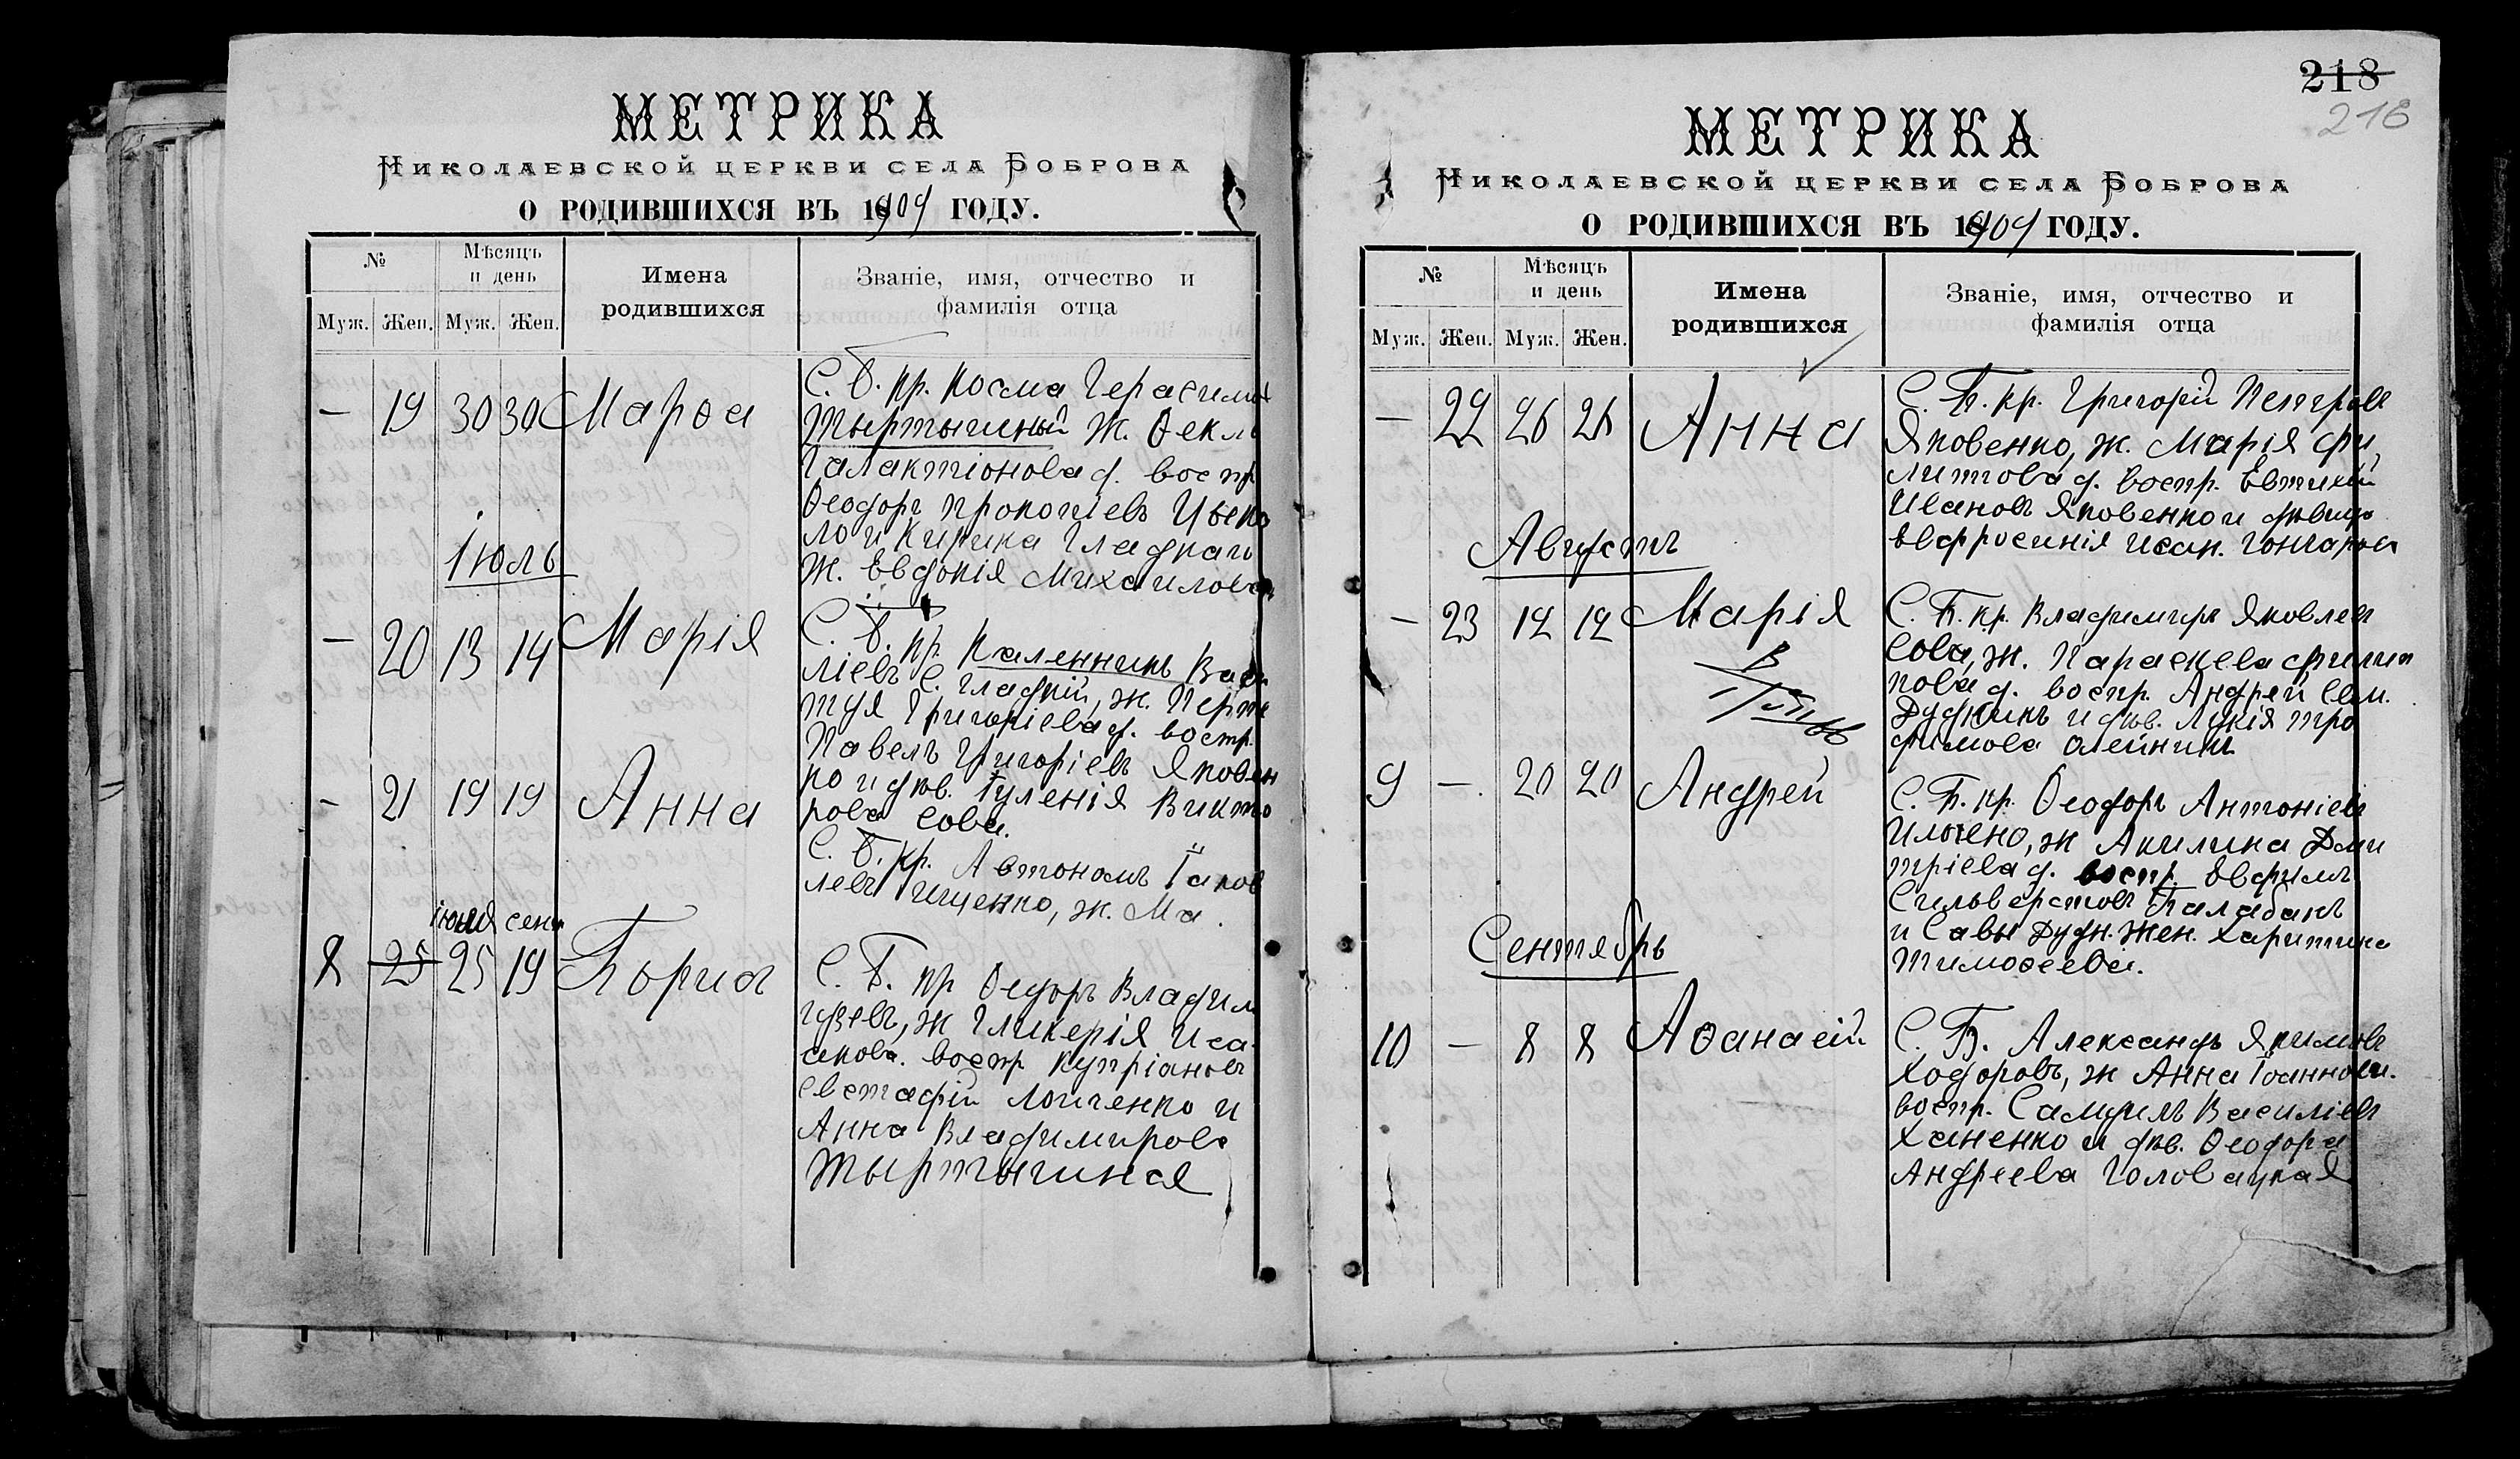 МЕТРИКА
НИКОЛАЕВСКОЙ ЦЕРКВИ СЕЛА БОБРОВА
О РОДИВШИХСЯ ВЪ 1904 ГОДУ.
№
Мѣсяцъ и день
Имена родившихся
Званіе, имя, отчество и фамилія отца
Муж. Жен. Муж. Жен.
— 19 30 30 Марѳа
С. Б. кр. Косма Герасимов
Тыртычный Ж. Ѳекла
Галактіонова д. воспр
Ѳеодоръ Прокопіевъ
ло и Кирика Гладкаго
Ж. Евдокія Михаилова
Іюль
— 20 13 14 Марія
С. Б. кр. Каленникъ Васи
ліевъ С. Гладкій, ж. Перпе
туя Григоріева д. воспр.
Павелъ Григоріевъ Яковен
ко и дѣв. Іуленія Викто
рова Сова.
- 21 19 19 Анна
С. Б. кр. Автономъ Іаков
левъ Ищенко, ж. Ма
іюня сент
8 25 25 19 Борис
С. Б. кр Ѳеодоръ Владим
ж Гликерія Иса
акова. воспр Купріановъ
Евстафій Логченко и
Анна Владимирова
Тыртычная
218
218
МЕТРИКА
НИКОЛАЕВСКОЙ ЦЕРКВИ СЕЛА БОБРОВА
О РОДИВШИХСЯ ВЪ 1904 ГОДУ.
№
Мѣсяцъ и день
Имена родившихся
Званіе, имя, отчество и фамилія отца
Муж. Жен. Муж. Жен.
— 22 26 26 Анна
С. Б. кр. Григорій Петровъ
Яковенко, ж. Марія Фи
липова д. воспр. Евтихій
Ивановъ Яковенко и дѣвица
Евфросинія Исак. Гончарова
Августъ
— 23 12 12 Марія
С. Б. кр. Владимиръ Яковлев
Сова, ж. Параскева Филип
пова д. воспр. Андрей Сем.
Дудникъ и дѣв. Лукія Тро
фимова Олейникъ
9 — 20 20 Андрей
С. Б. кр. Ѳеодоръ Антоніевъ
Ильченко, ж Акилина Дми
тріева д. воспр. Евфимъ
Сильверстовъ Балабанъ
и Савы Дудн. жен. Харитина
Тимоѳеева.
Сентябрь
10 — 8 8 Аѳанасій
С. Б. Александръ Якимовъ
Ходоровъ, ж Анна Іоаннова.
воспр. Самуилъ Василіевъ
Ханенко и дѣв. Ѳеодора
Андреева Головацкая